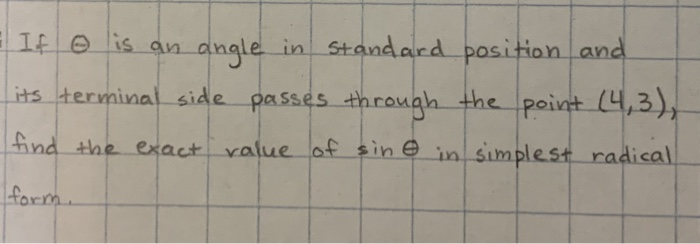 If θ is an angle in standard position and
its terminal side passes through the point (4,3),
find the exact value of sin θ in simplest radical
form.